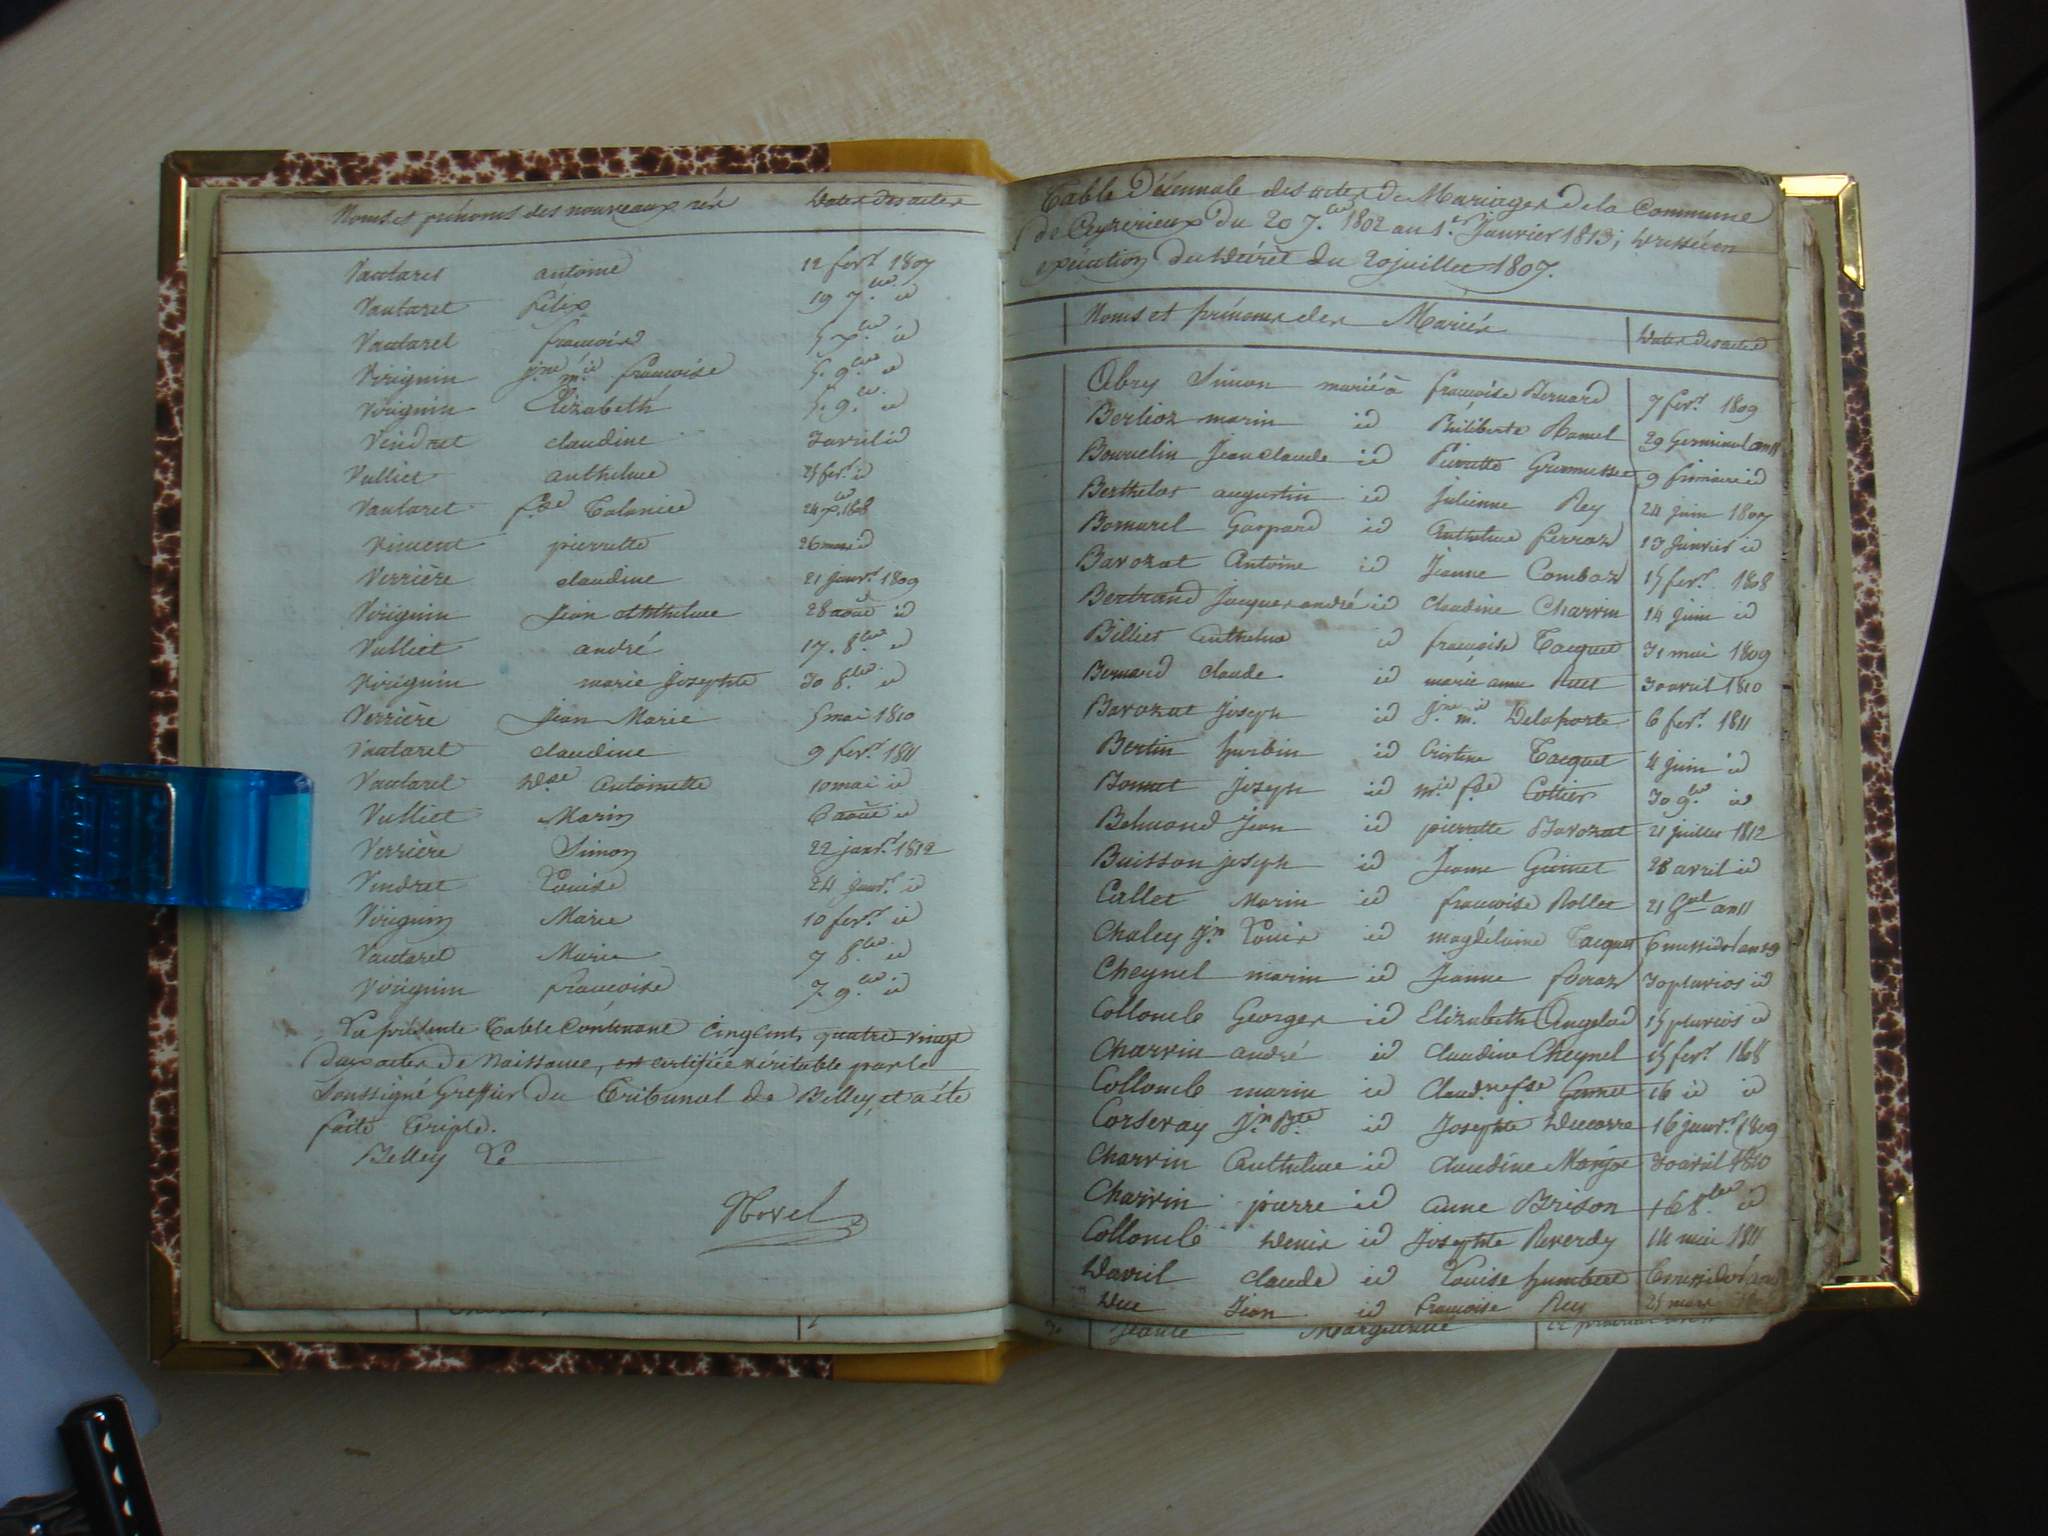 Noms et prénoms des nouveaux nés Dates des actes
Vautaret antoine 12 fevr. 1807
Vautaret félix 19 7.bre id
Vautaret francois
Viriguin j.ne m.ie francoise 5. 9.bre id
Viriguin Elizabeth 5. 9.bre id
Vendret claudine 3 avril id
Vulliet anthelme 25 fevr. id
Vautaret f.se Colonice 24 x.bre 1808
Vincent pierrette 26 mars id
Verrière claudine 21 janvr. 1809
Viriguin Jean Anthelme 28 août id
Vulliet andré 17. 8.bre id
Viriguin marie Josephte 30 8.bre id
Verrière Jean Marie 5 mai 1810
Vautaret claudine 9 fevr. 1811
Vautaret antoinette 10 mai id
Vulliet Marin 6 août id
Verrière Simon 22 janvr. 1812
Vindret Louise 24 janvr. id
Viriguin Marie 10 fevr. id
Vautaret Marie 7 8.bre id
Viriguin francoise 7. 9.bre id
La présente Table Contenant Cinq Cent quatre vingt
deux actes de Naissance, est certifiée véritable par le
Soussigné Greffier du Tribunal de Belley, et a été
faite Triple.
Belley Le
Novel
Table Décennale des actes de Mariages de la Commune
de Ceyzerieux Du 20 7.bre 1802 au 1.er Janvier 1813, dressée en
exécution du Décret du 20 juillet 1807.
Noms et prénoms des Mariés Dates des actes
Abry Simon marié à francoise Bernard 7 fevr. 1809
Berlioz marin id Philiberte Hamel 29 Germinal an 11
Bourselin Jean claude id Pierrette 9 frimaire id
Berthelos augustin id Julienne Rey 24 juin 1807
Bomurel Gaspard id Anthelme ferraz 13 Janvier id
Bavozat Antoine id Jeanne Combaz 15 fevr. 1808
Bertrand Jacques andré id Claudine Charvin 14 juin id
Billiet Anthelme id francoise Tacquet 31 mai 1809
Bernard claude id marie anne Ruet 30 avril 1810
Bavozat Joseph id j.ne m.ie Delaporte 6 fevr. 1811
Bertin hurbin id Cristine Tacquet 4 juin id
Bonnet Joseph id m.ie f.se Collier 30 9.bre id
Behuand Jean id pierrette Bavozat 21 juillet 1812
Buisson joseph id Jeanne Guinet 28 avril id
Callet Marin id francoise Rollet 21 G.al an 11
Chaley J.n Louis id magdelaine Tacquet 6 messidor
Cheynel marin id Jeanne feraz 30 pluvios id
Collomb George id Elizabeth Angelod 15 pluvios id
Charvin andré id Claudine Cheynel 15 fevr. 1808
Collomb marin id Claud.ne f.se 16 id id
Corseray J.n B.te id Josephte Ducarre 16 janvr. 1809
Charvin Anthelme id Claudine Monjoz 30 avril 1810
Charvin pierre id anne Brison 16 8.bre id
Collomb Denis id Josephte Reverdy 14 mai 1811
Davril claude id Louise humbert 6 messidor
Duc Jean id francoise Rey 25 mars